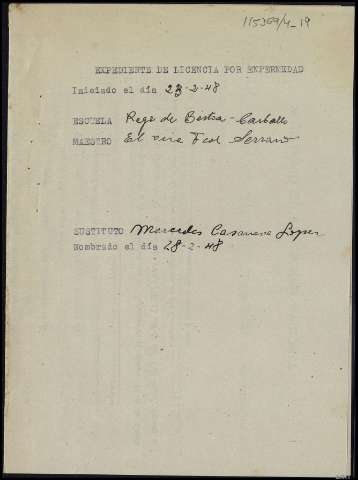 115369/4-19
EXPEDIENTE DE LICENCIA POR ENFERMEDAD
Iniciado el dia 23-2-48
ESCUELA Rege de Bértoa - Carballo
MAESTRO Elvira Serrano
SUSTITUTO Mercedes Casanova Lopez
Nombrado el dia 28-2-48